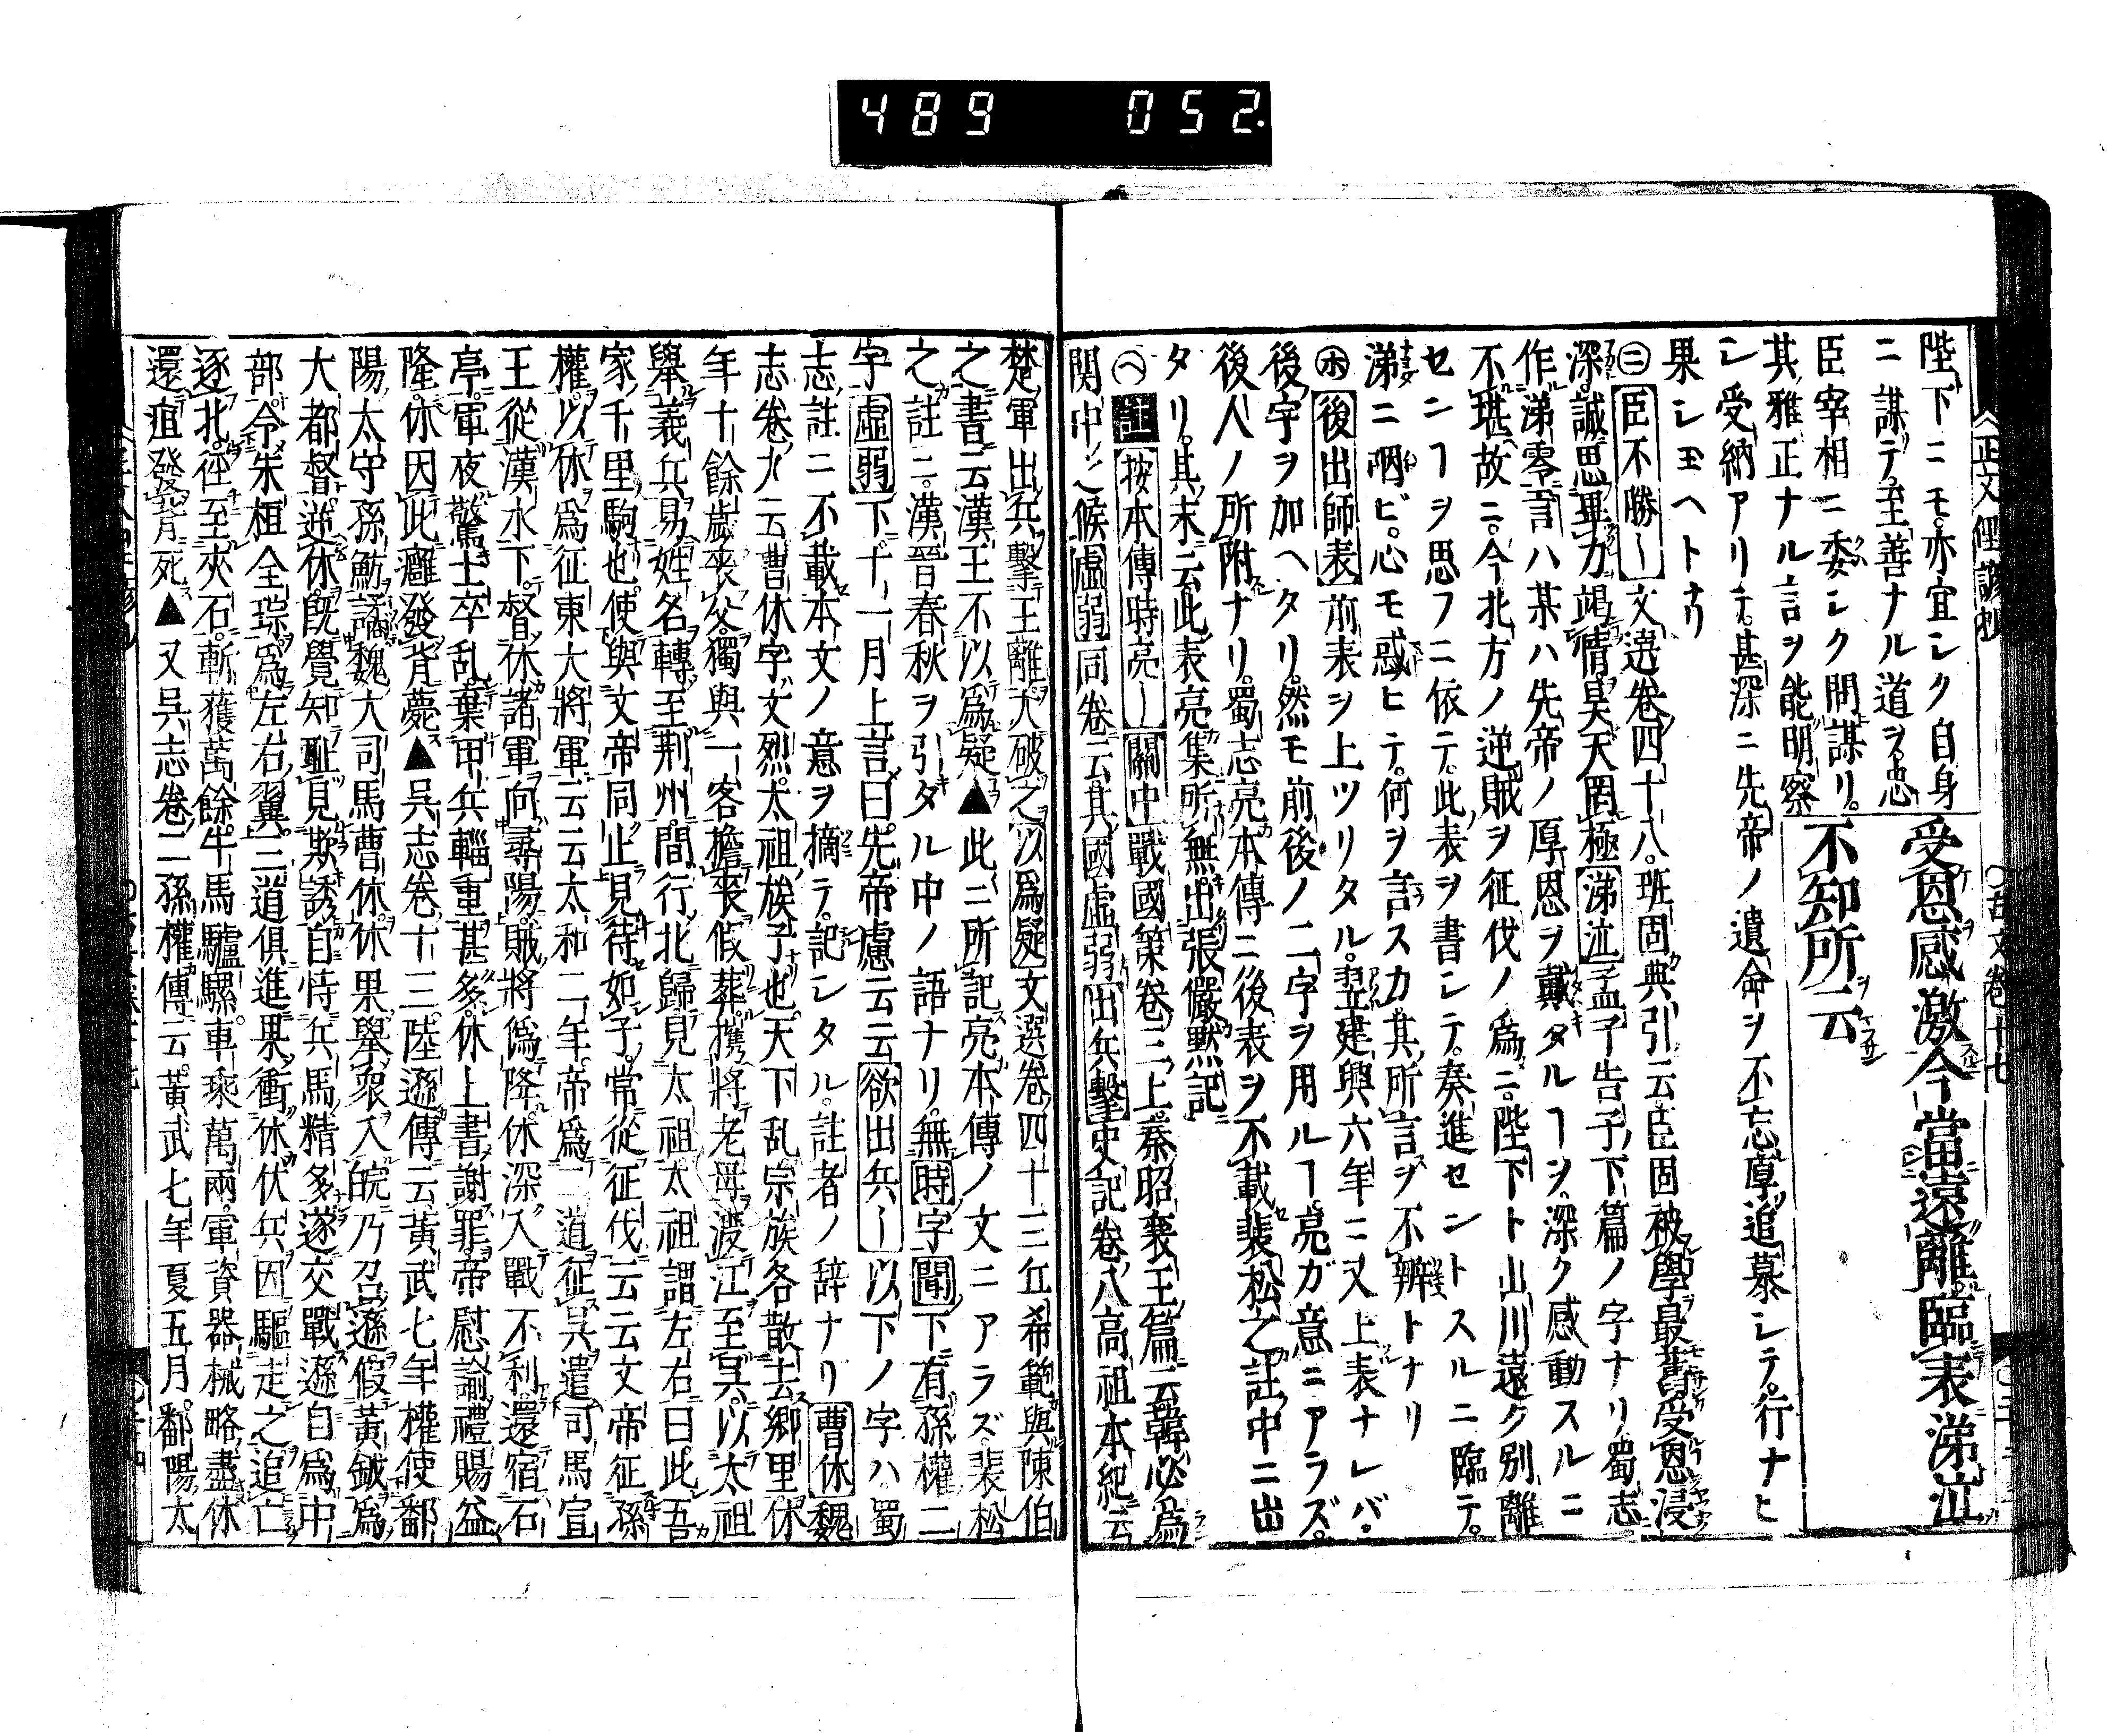 489 052.
陛下ニモ亦宜シク自身
ニ謀テ至善ナル道ヲ忠
臣宰相ニ委シク問謀リ
其雅正ナル言ヲ能明察
受恩感激今當遠離臨表涕泣
不知所云
シ受納アリテ甚深ニ先帝ノ遺命ヲ不忘厚追慕シテ行ナヒ
果シ玉ヘトナリ
㊁臣不勝ー文選卷四十八班固典引云臣固被學最舊受恩浸
深誠思畢力竭情昊天罔極涕泣孟子告子下篇ノ字ナリ蜀志
作涕零言ハ某ハ先帝ノ厚恩ヲ戴タルヿヲ深ク感動スルニ
不堪故ニ今北方ノ逆賊ヲ征伐ノ爲ニ陛下ト山川遠ク別離
センヿヲ思フニ依テ此表ヲ書シテ奏進セントスルニ臨テ
涕ニ咽ビ心モ惑ヒテ何ヲ言スカ其所言ヲ不辨トナリ
㋭後出師表前表ヲ上ツリタル翌建興六年ニ又上表ナレバ
後字ヲ加ヘタリ然モ前後ノ二字ヲ用ルヿ亮ガ意ニアラズ
後人ノ所附ナリ蜀志亮本傳ニ後表ヲ不載裴松之註中ニ出
タリ其末云此表亮集所無出張儼默記
㋬註按本傳時亮ー關中戰國策卷三上秦昭襄王篇云韓必爲
関中之候虛弱同卷云其國虛弱出兵擊史記卷八高祖本紀云
楚軍出兵擊王離大破之以爲疑文選卷四十三丘希範與陳伯
之書云漢王不以爲疑▲此ニ所記亮本傳ノ文ニアラズ裴松
之註ニ漢晉春秋ヲ引タル中ノ語ナリ無時字聞下有孫權二
字虛弱下十一月上言曰先帝慮云云欲出兵ー以下ノ字ハ蜀
志註ニ不載本文ノ意ヲ摘テ記シタル註者ノ辞ナリ曹休魏
志卷九云曹休字文烈太祖族子也天下乱宗族各散去郷里休
年十餘歲喪父獨與一客擔喪假葬携將老母渡江至吳以太祖
舉義兵易姓名轉至荆州間行北歸見太祖太祖謂左右曰此吾
家千里駒也使與文帝同止見待如子常從征伐云云文帝征孫
權以休爲征東大將軍云云太和二年帝爲二道征吳遣司馬宣
王從漢水下督休諸軍向尋陽賊將僞降休深入戰不利還宿石
亭軍夜驚士卒乱棄甲兵輜重甚多休上書謝罪帝慰諭禮賜益
隆休因此癰發背薨▲吳志卷十三陸遜傳云黃武七年權使鄱
陽太守孫魴譎魏大司馬曹休休果舉衆入皖乃召遜假黃鉞爲
大都督逆休既覺知耻見欺誘自恃兵馬精多遂交戰遜自爲中
部令朱桓全琮爲左右翼三道俱進果衝休伏兵因驅走之追亡
逐北徑至夾石斬獲萬餘牛馬驢騾車乘萬兩軍資器械略盡休
還疽發背死▲又吳志卷二孫權傳云黃武七年夏五月鄱陽太